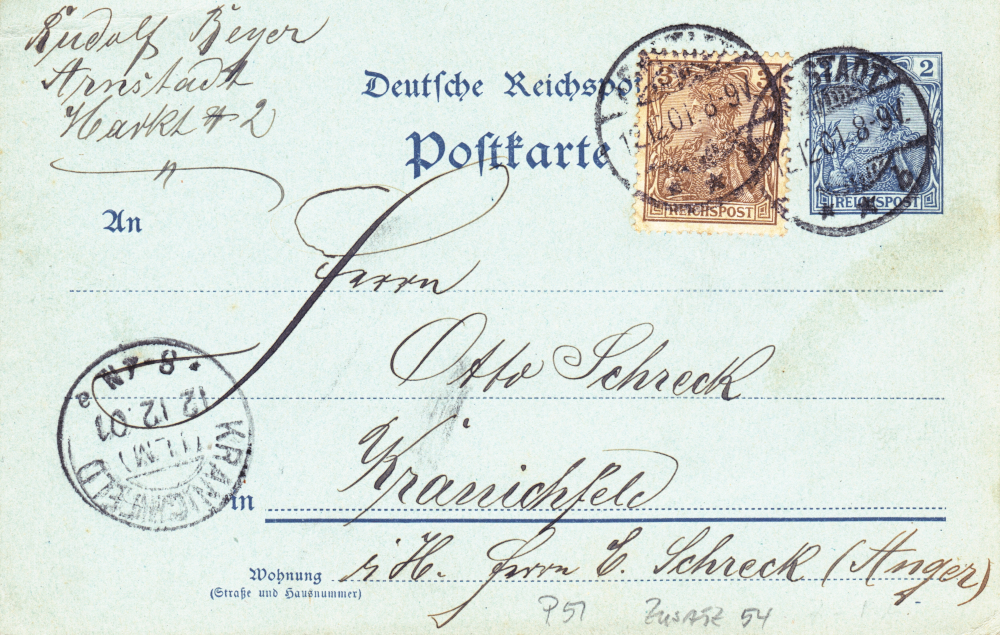 Rudolf Beyer
Arnstadt
Markt # 2
Deutsche Reichspo
Postkarte
3
2
REICHSPOST
REICHSPOST
STADT
12.12.01.8-9V.
b
12.12.01.8-9V.
An
Herrn
Otto Schreck
KRANICHFELD
(ILM)
12 12.01
in Kranichfeld
Wohnung i/H. Herrn E. Schreck (Anger)
(Straße und Hausnummer)
P51 ZUSATZ 54